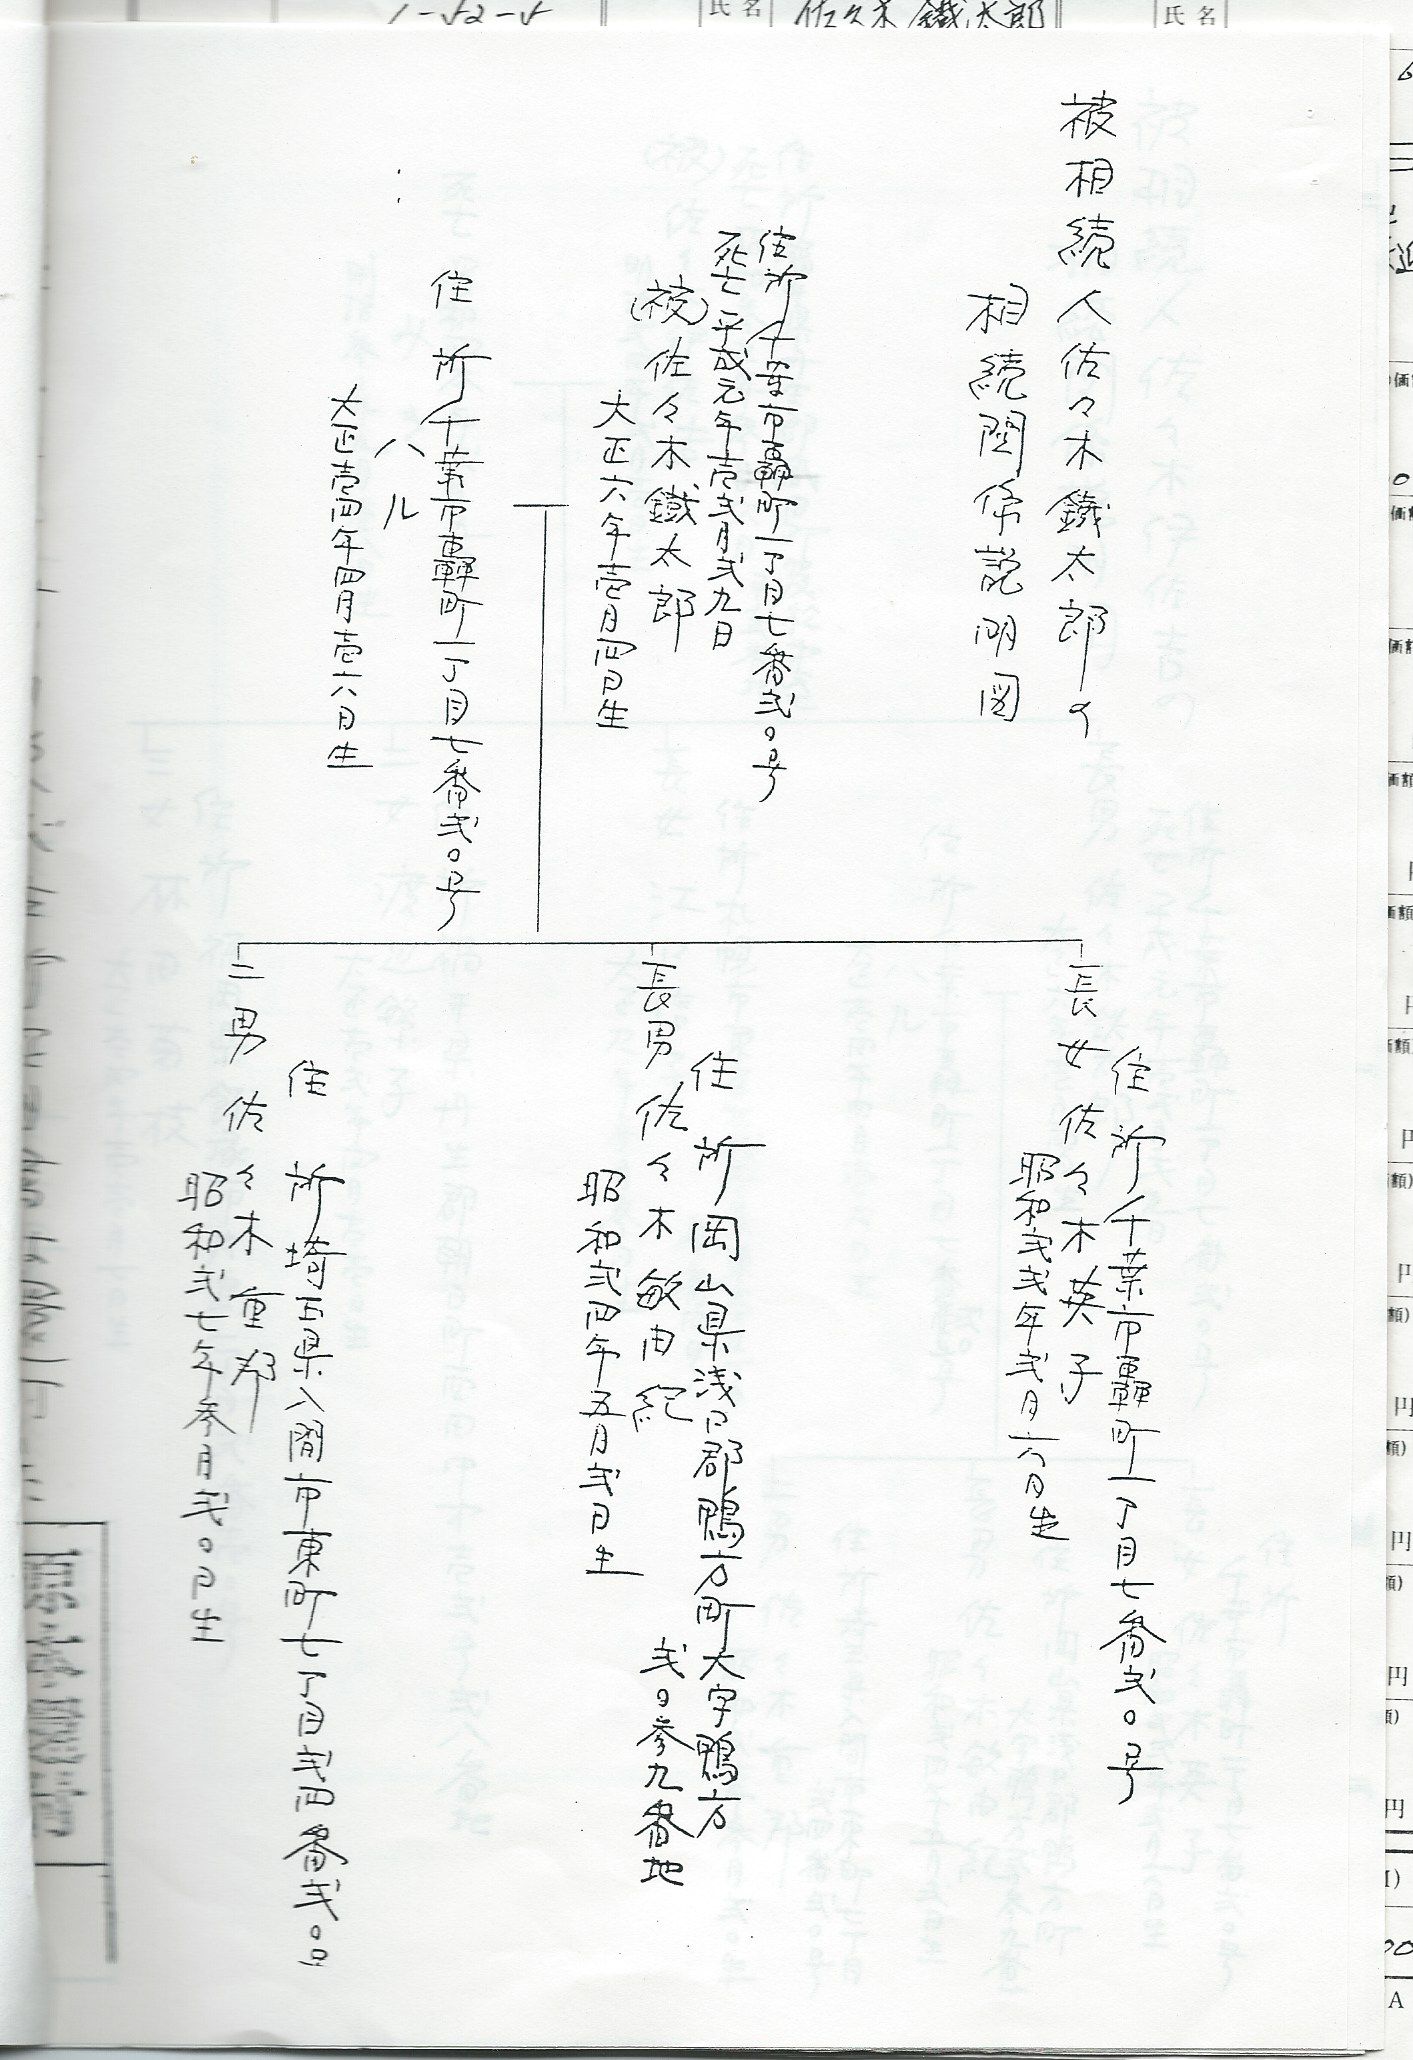 被相続人佐々木鐵太郎の
相続関係説明図
住所千葉市轟町一丁目七番弐〇号
死亡平成元年壱弐月弐九日
(被)佐々木鐵太郎
大正六年壱月四日生
住所千葉市轟町一丁目七番弐〇号
ハル
大正壱四年四月壱六日生
住所千葉市轟町一丁目七番弐〇号
長女佐々木英子
昭和弐弐年弐月六日生
住所岡山県浅口郡鴨方町大字鴨方
弐〇参九番地
長男佐々木敏由紀
昭和弐四年五月弐日生
住所埼玉県入間市東町七丁目弐四番弐〇号
二男佐々木重郎
昭和弐七年参月弐〇日生
氏名
佐々木鐵太郎
氏名